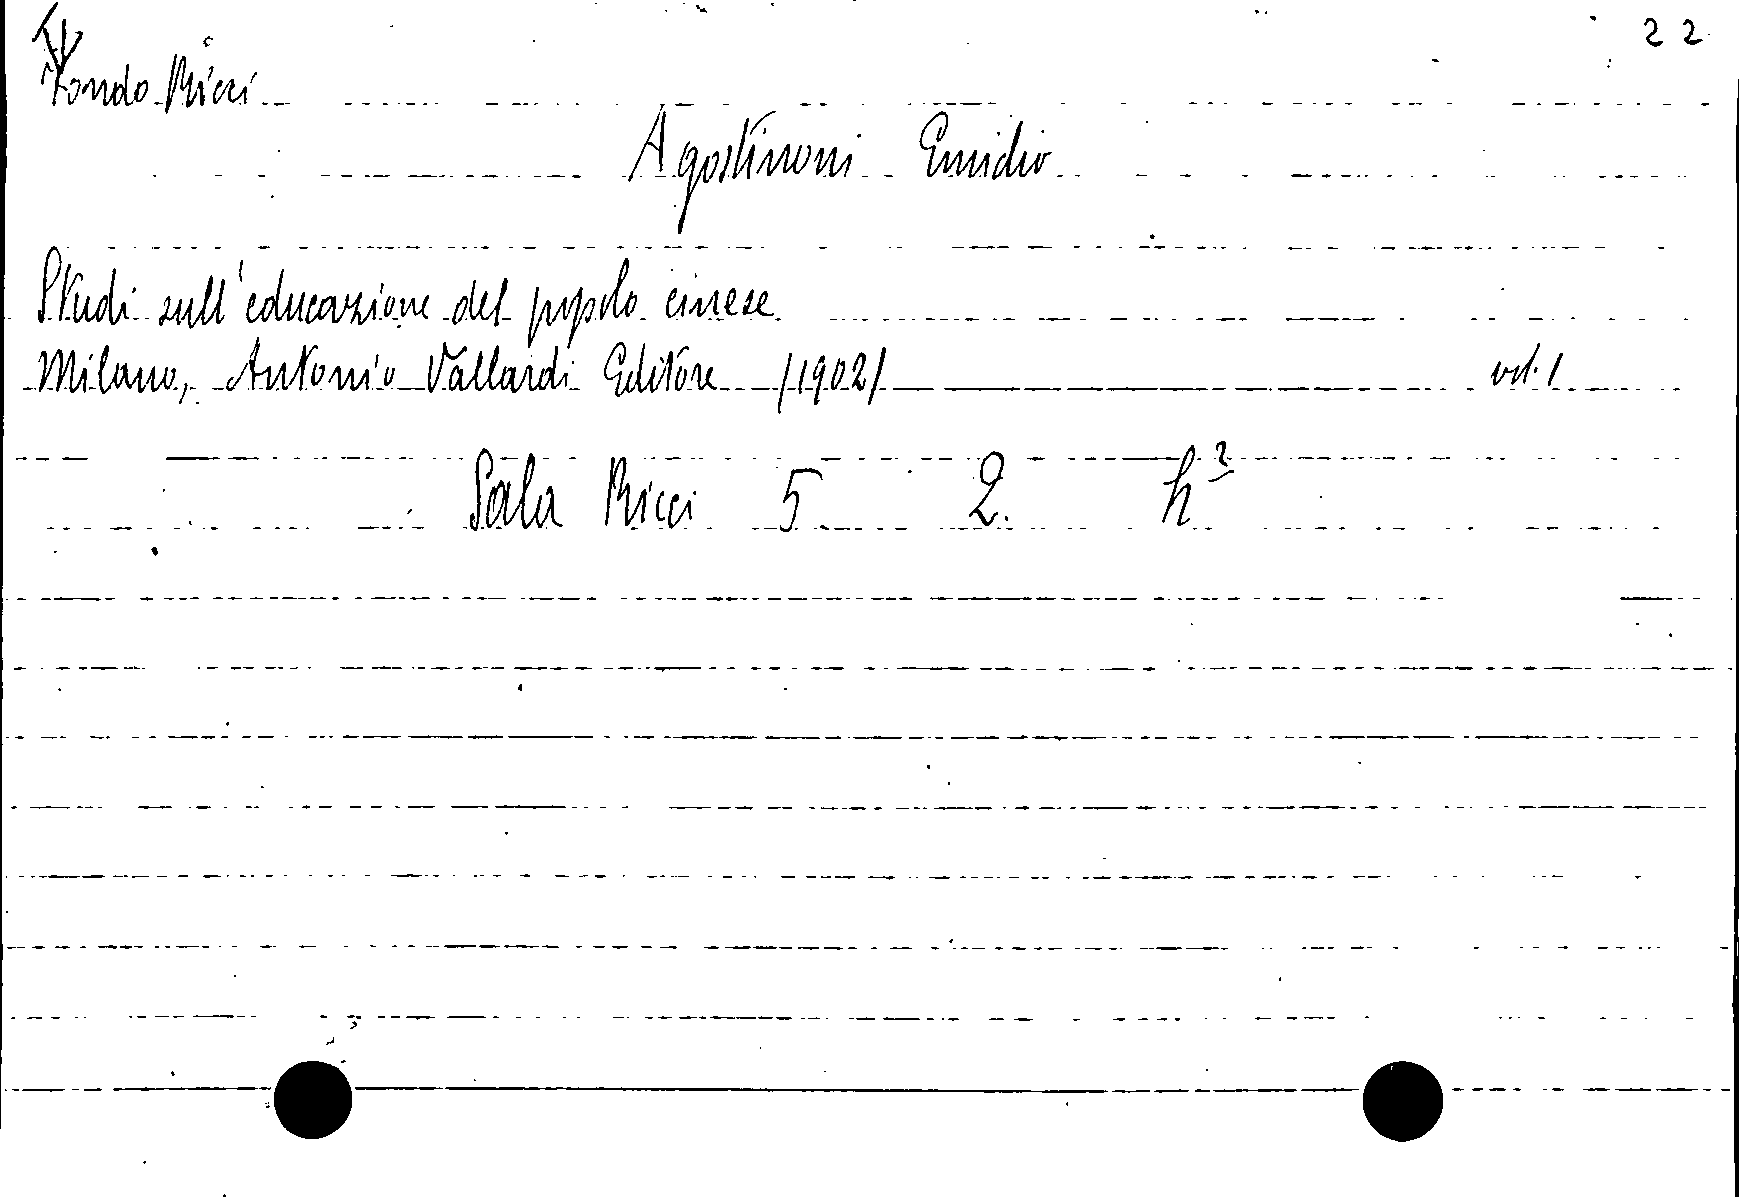 22
Fondo Ricci
Agostinoni Emidio
Studi sull'educazione del popolo cinese
Milano, Antonio Vallardi Editore /1902/ vol. 1
Sala Ricci 5 2. h²